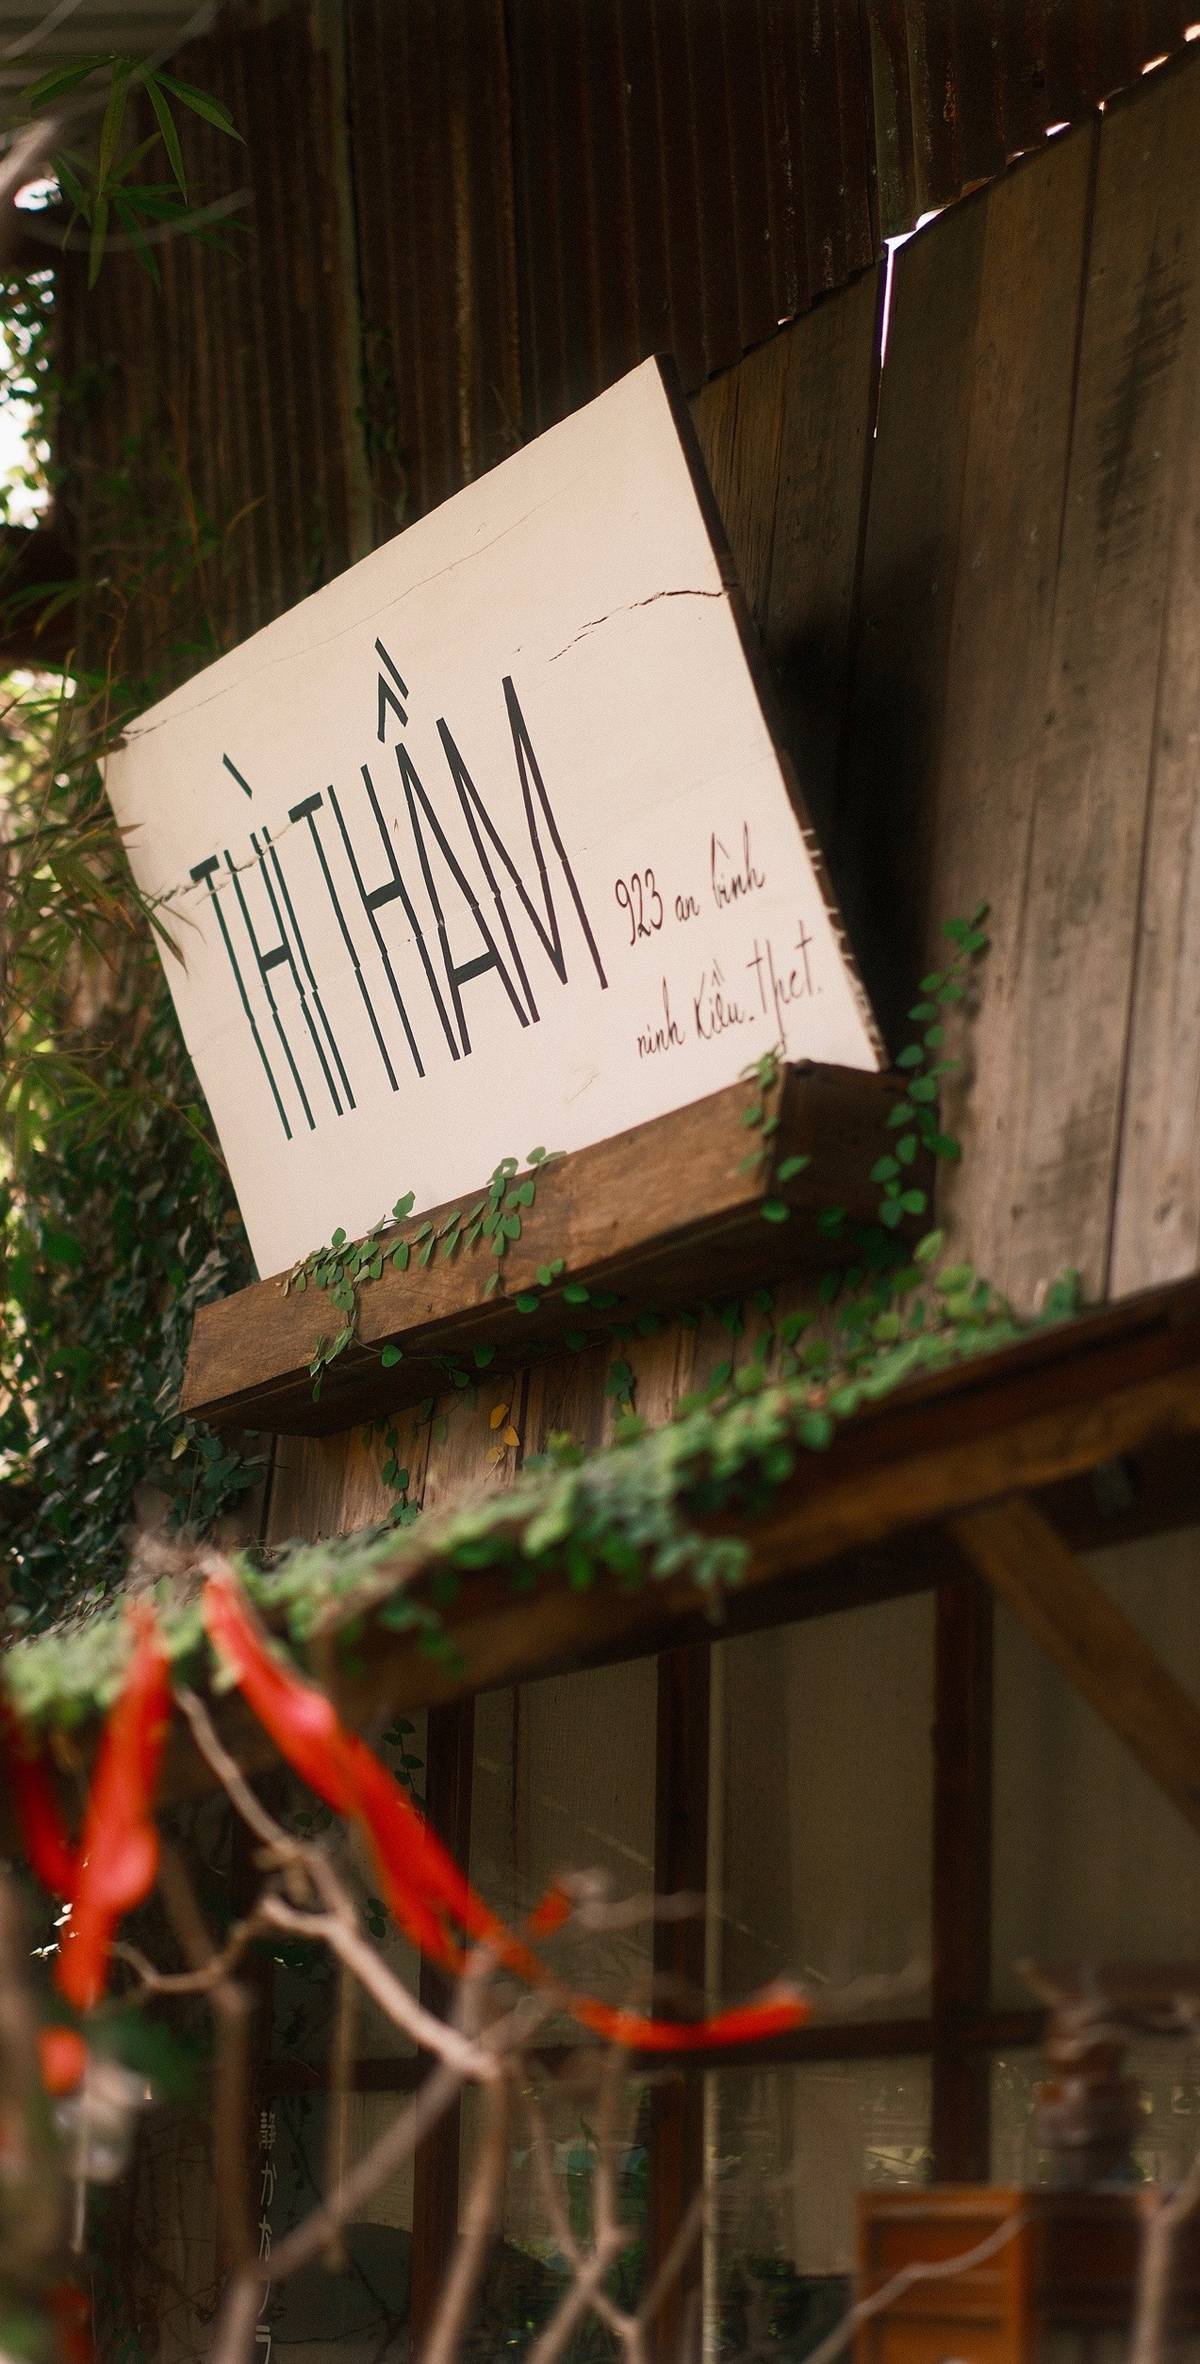 THÌ THẦM
923 an bình
ninh Kiều. tpct.
静かな